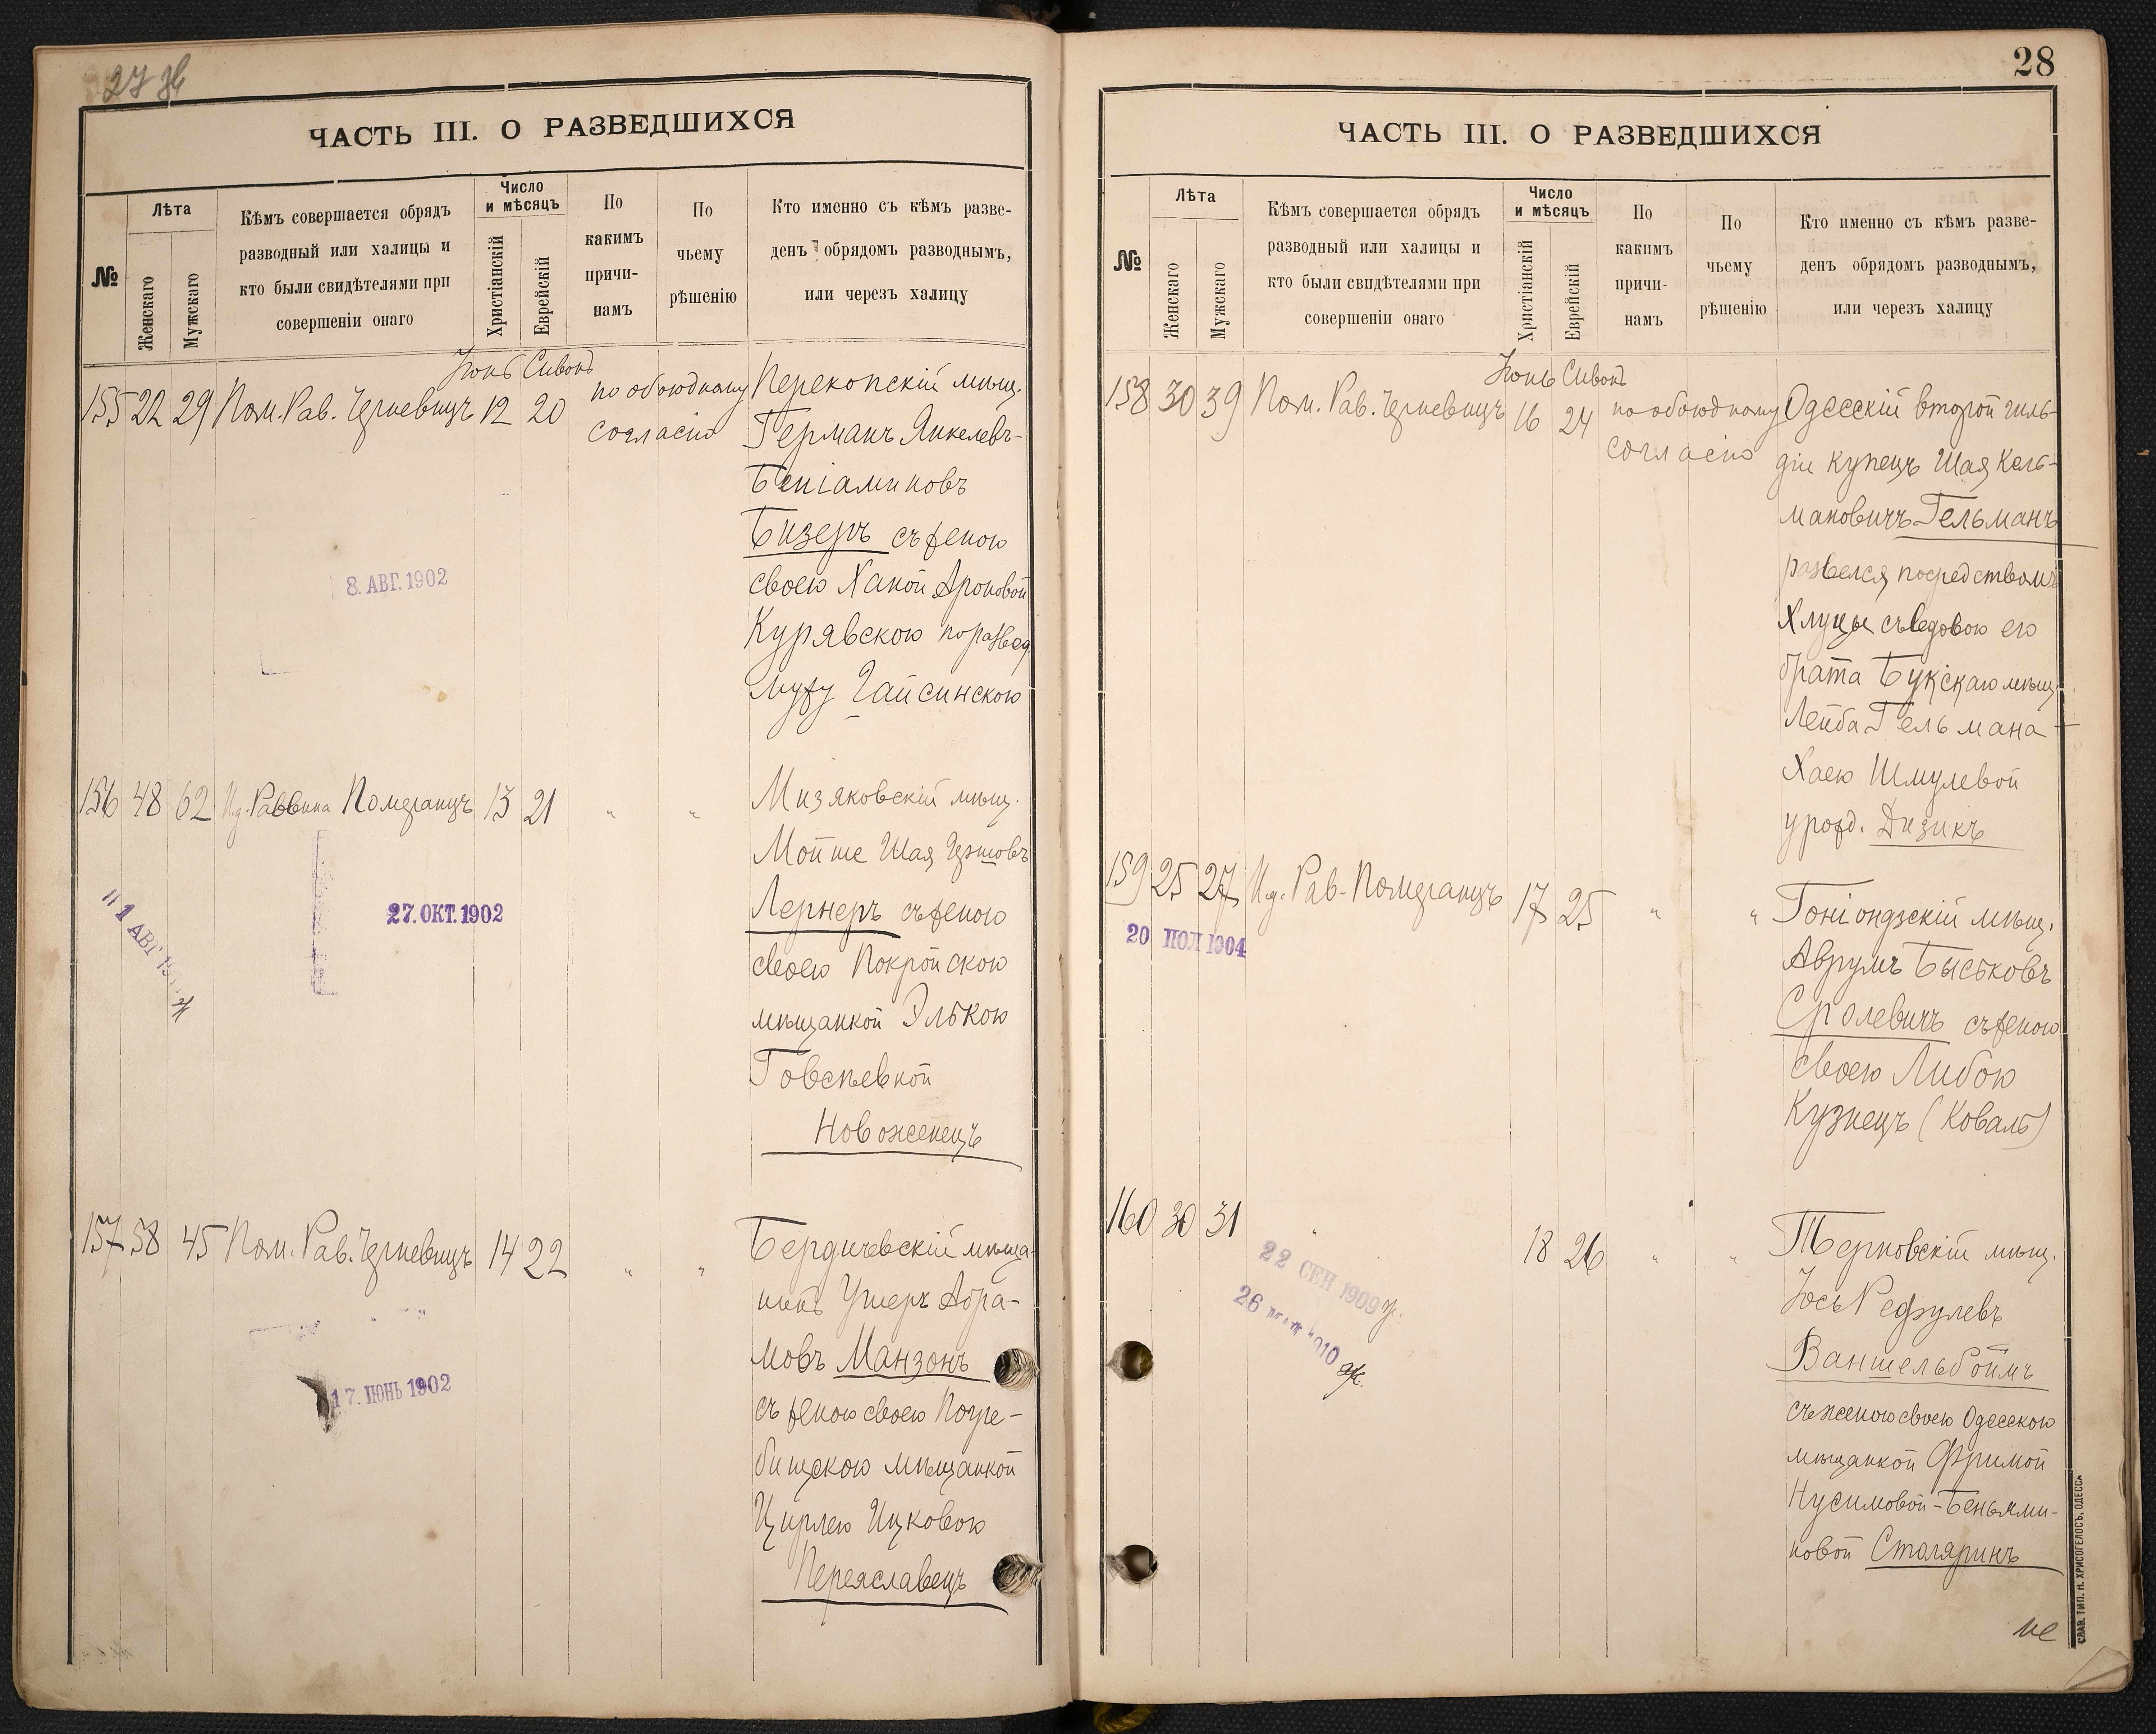 ЧАСТЬ III. О РАЗВЕДШИХСЯ
№
Лѣта
Женскаго
Мужскаго
Кѣмъ совершается обрядъ
разводный или халицы и
кто были свидѣтелями при
совершеніи онаго
Число
и мѣсяцъ
Христіанскій
Еврейскій
По
какимъ
причи-
намъ
По
чьему
рѣшенію
Кто именно съ кѣмъ разве-
денъ обрядомъ разводнымъ,
или черезъ халицу
Іюнь Сивонъ
155 22 29 Пом. Рав. Черневицъ 12 20 по обоюдному Перекопскій мѣщ.
согласію Германъ Янкелевъ-
Беніаминовъ
Бизеръ съ женою
8. АВГ. 1902
своею Ханой Ароновой
Курявскою по развед.
мужу Гайсинскою
156 48 62 И.д. Раввина Померанцъ 13 21 " " Мизяковскій мѣщ.
Мойше Шая
27. ОКТ. 1902
Лернеръ съ женою
своею Покройскою
мѣщанкой Элькою
Говсѣевной
Новоженецъ
157 58 45 Пом. Рав. Черневицъ 14 22 " " Бердичевскій мѣща-
нинъ Ушеръ Абра-
мовъ Манзонъ
17. ИЮНЬ 1902
съ женою своею Погре-
бищскою мѣщанкой
Цирлею Ицковою
Переяславецъ
28
ЧАСТЬ III. О РАЗВЕДШИХСЯ
№
Лѣта
Женскаго
Мужскаго
Кѣмъ совершается обрядъ
разводный или халицы и
кто были свидѣтелями при
совершеніи онаго
Число
и мѣсяцъ
Христіанскій
Еврейскій
По
какимъ
причи-
намъ
По
чьему
рѣшенію
Кто именно съ кѣмъ разве-
денъ обрядомъ разводнымъ,
или черезъ халицу
Іюнь Сивонъ
158 30 39 Пом. Рав. Черневицъ 16 24 по обоюдному Одесскій второй гиль-
согласію діи купецъ Шая Кель-
мановичъ Гельманъ
развелся посредствомъ
Хлуцы съ вдовою его
брата Букскаго мѣщ.
Лейба Гельмана-
Хаею Шмулевой
урожд. Дизикъ
159 25 27 И.д. Рав. Померанцъ 17 25 " " Гоніондзскій мѣщ.
20 ІЮЛ 1904
Аврумъ Быськовъ
Сролевичъ съ женою
своею Либою
Кузнецъ (Коваль)
160 30 31 " 18 26 " " Терновскій мѣщ.
22 СЕН 1909
Іось Рефулевъ
Ваншельбоймъ
съ женою своею Одесскою
мѣщанкой Фримой
Нусимовой-Беньями-
новой Столяринъ
СЛАВ. ТИП. Н. ХРИСОГЕЛОСЪ, ОДЕССА